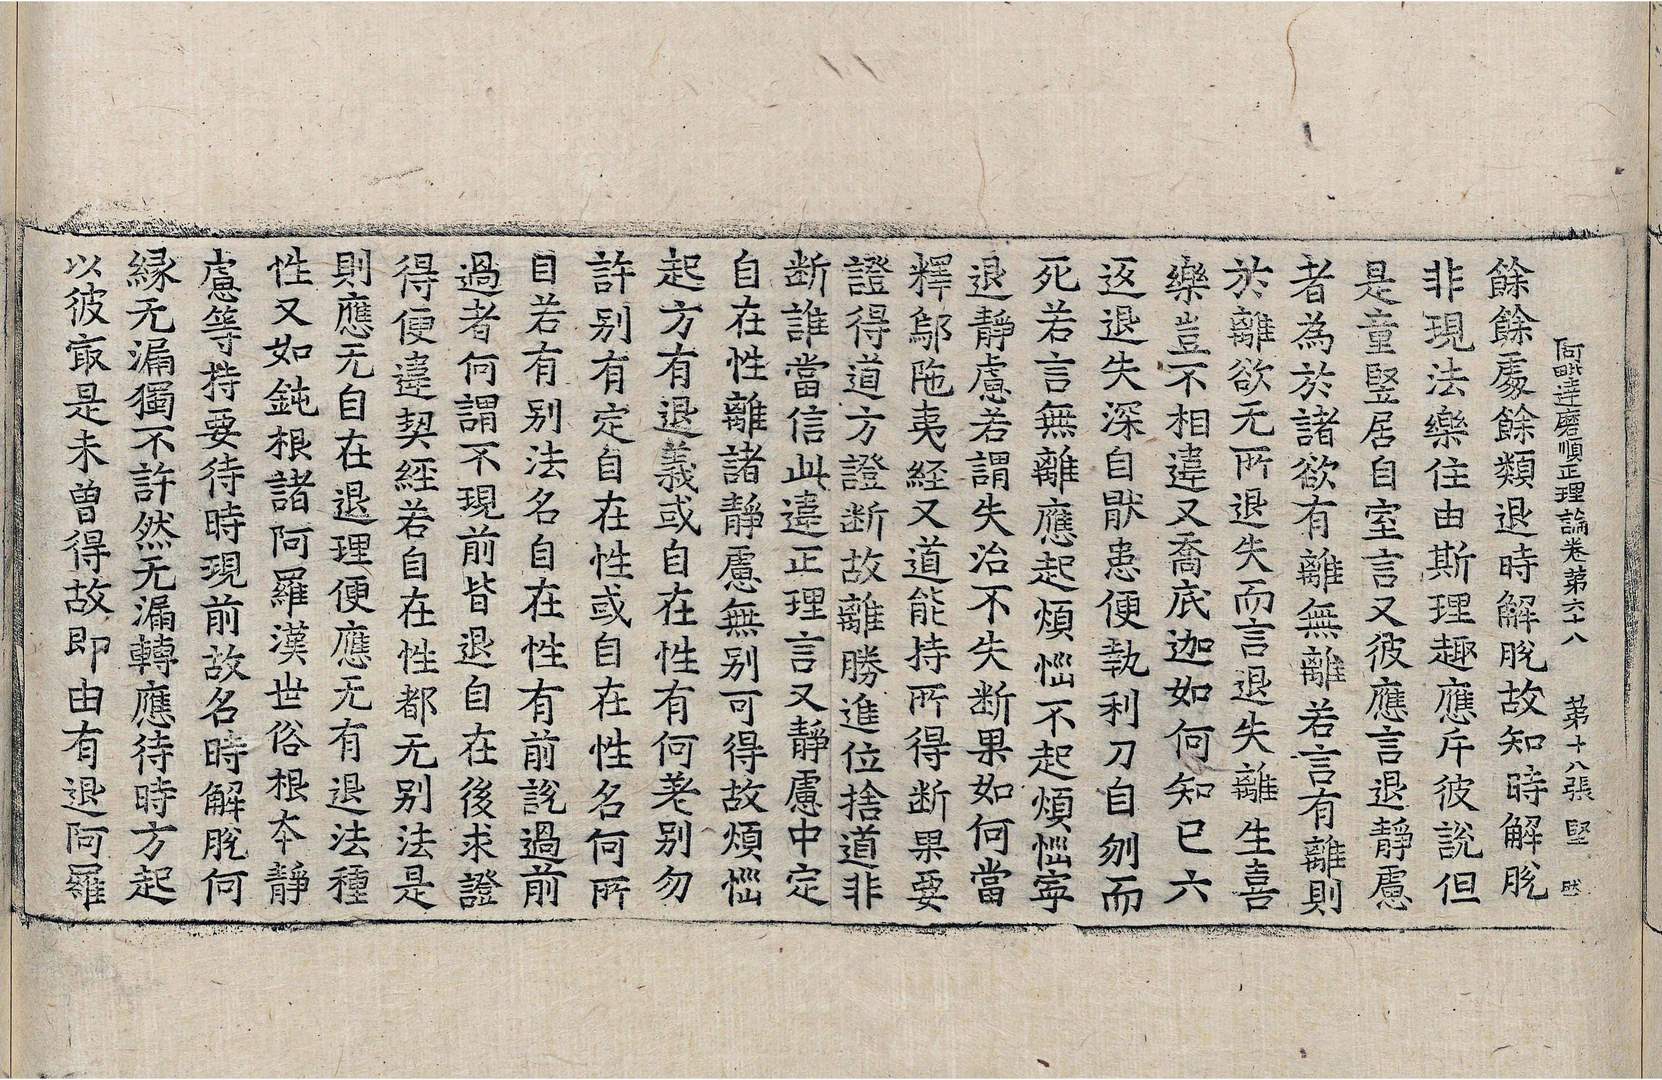 阿毗達磨順正理論卷第六十八 第十八張 堅
餘餘處餘類退時解脫故知時解脫
非現法樂住由斯理趣應斥彼說但
是童豎居自室言又彼應言退靜慮
者為於諸欲有離無離若言有離則
於離欲无所退失而言退失離生喜
樂豈不相違又喬底迦如何知已六
返退失深自猒患便執利刀自刎而
死若言無離應起煩惱不起煩惱寧
退靜慮若謂失治不失断果如何當
釋鄔陁夷經又道能持所得断果要
證得道方證断故離勝進位捨道非
断誰當信此違正理言又靜慮中定
自在性離諸靜慮無别可得故煩惱
起方有退義或自在性有何差别勿
許别有定自在性或自在性名何所
目若有别法名自在性有前說過前
過者何謂不現前皆退自在後求證
得便違契經若自在性都无别法是
則應无自在退理便應无有退法種
性又如鈍根諸阿羅漢世俗根本靜
慮等持要待時現前故名時解脫何
緣无漏獨不許然无漏轉應待時方起
以彼㝡是未曾得故即由有退阿羅